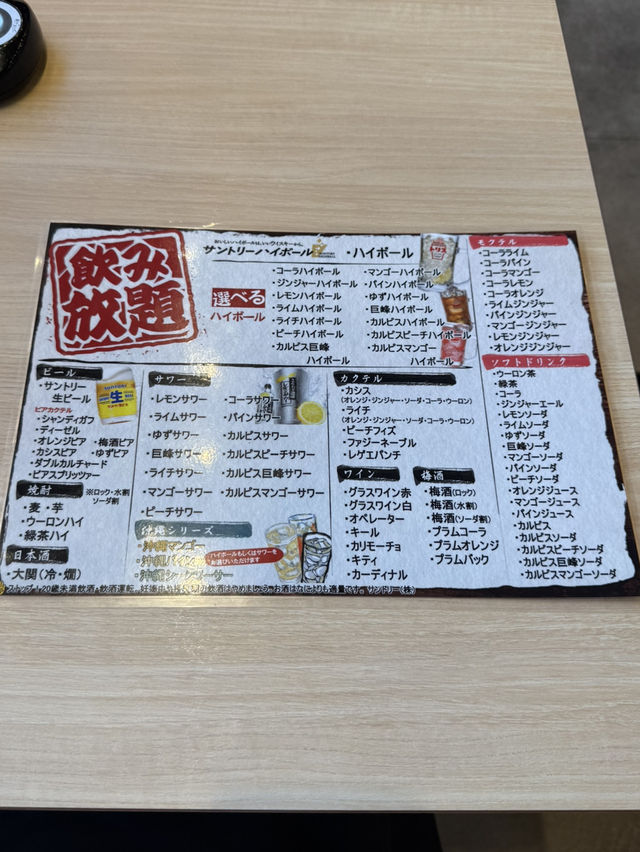 飲み
放題
おいしいハイボールは、いいウイスキーから。
サントリーハイボール
・ハイボール
選べる
ハイボール
・コーラハイボール
・ジンジャーハイボール
・レモンハイボール
・ライムハイボール
・ライチハイボール
・ピーチハイボール
・カルピス巨峰
ハイボール
・マンゴーハイボール
・パインハイボール
・ゆずハイボール
・巨峰ハイボール
・カルピスハイボール
・カルピスピーチハイボール
・カルピスマンゴー
ハイボール
トリス
モクテル
・コーラライム
・コーラパイン
・コーラマンゴー
・コーラレモン
・コーラオレンジ
・ライムジンジャー
・パインジンジャー
・マンゴージンジャー
・レモンジンジャー
・オレンジジンジャー
ソフトドリンク
・ウーロン茶
・緑茶
・コーラ
・ジンジャーエール
・レモンソーダ
・ライムソーダ
・ゆずソーダ
・巨峰ソーダ
・マンゴーソーダ
・パインソーダ
・ピーチソーダ
・オレンジジュース
・マンゴージュース
・パインジュース
・カルピス
・カルピスソーダ
・カルピスピーチソーダ
・カルピス巨峰ソーダ
・カルピスマンゴーソーダ
ビール
・サントリー
生ビール
SUNTORY
生
ビアカクテル
・シャンディガフ
・ディーゼル
・オレンジビア
・カシスビア
・ダブルカルチャード
・ビアスプリッツァー
・梅酒ビア
・ゆずビア
焼酎
※ロック・水割
ソーダ割
・麦・芋
・ウーロンハイ
・緑茶ハイ
日本酒
・大関(冷・燗)
サワー
・レモンサワー
・ライムサワー
・ゆずサワー
・巨峰サワー
・ライチサワー
・マンゴーサワー
・ピーチサワー
・コーラサワー
・パインサワー
・カルピスサワー
・カルピスピーチサワー
・カルピス巨峰サワー
・カルピスマンゴーサワー
沖縄シリーズ
・沖縄マンゴー
・沖縄パイン
・沖縄シークワーサー
ハイボールもしくはサワーを
お選びいただけます
カクテル
・カシス
(オレンジ・ジンジャー・ソーダ・コーラ・ウーロン)
・ライチ
(オレンジ・ジンジャー・ソーダ・コーラ・ウーロン)
・ピーチフィズ
・ファジーネーブル
・レゲエパンチ
ワイン
・グラスワイン赤
・グラスワイン白
・オペレーター
・キール
・カリモーチョ
・キティ
・カーディナル
梅酒
・梅酒(ロック)
・梅酒(水割)
・梅酒(ソーダ割)
・プラムコーラ
・プラムオレンジ
・プラムバック
ストップ!20歳未満飲酒・飲酒運転。
サントリー(株)